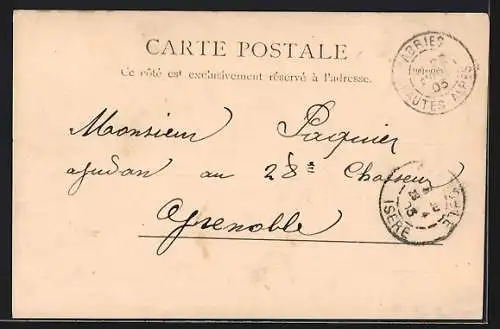 CARTE POSTALE
Ce côté est exclusivement réservé à l'adresse.
ABRIES
05
HAUTES ALPES
Monsieur Paquier
adjudan au 28e Chasseur
Grenoble
ISERE